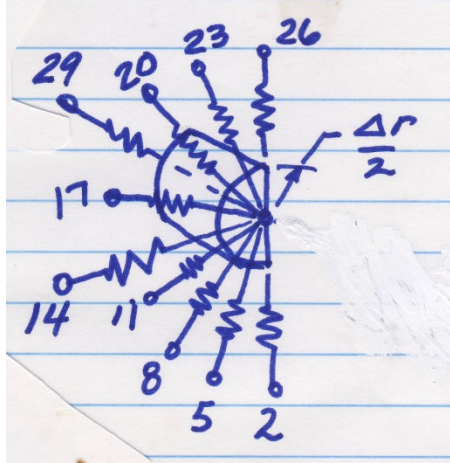 23
26
29
20
Δr
2
17
14
11
8
5
2